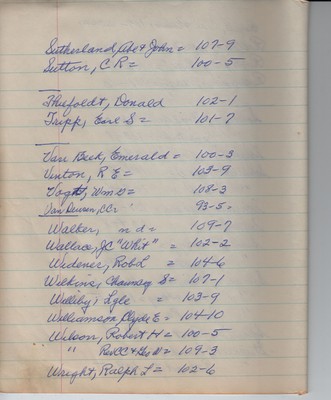 Sutherland, Abe & John = 107-9
Sutton, C R = 100-5
Thufoldt, Donald 102-1
Tripp, Earl S = 101-7
Van Beek, Emerald = 100-3
Vinton, R E = 103-9
Voght, Wm D = 108-3
Van Deusen, CCr 93-5.
Walker, n d = 109-7
Wallace, JC "Whit" = 102-2
Widener, Rob L = 104-6
Wilkins, Chauncey S = 107-1
Williby, Lyle = 103-9
Williamson, Clyde E = 104-10
Wilson, Robert H = 100-5
" Rev CC & = 109-3
Wright, Ralph L = 102-6